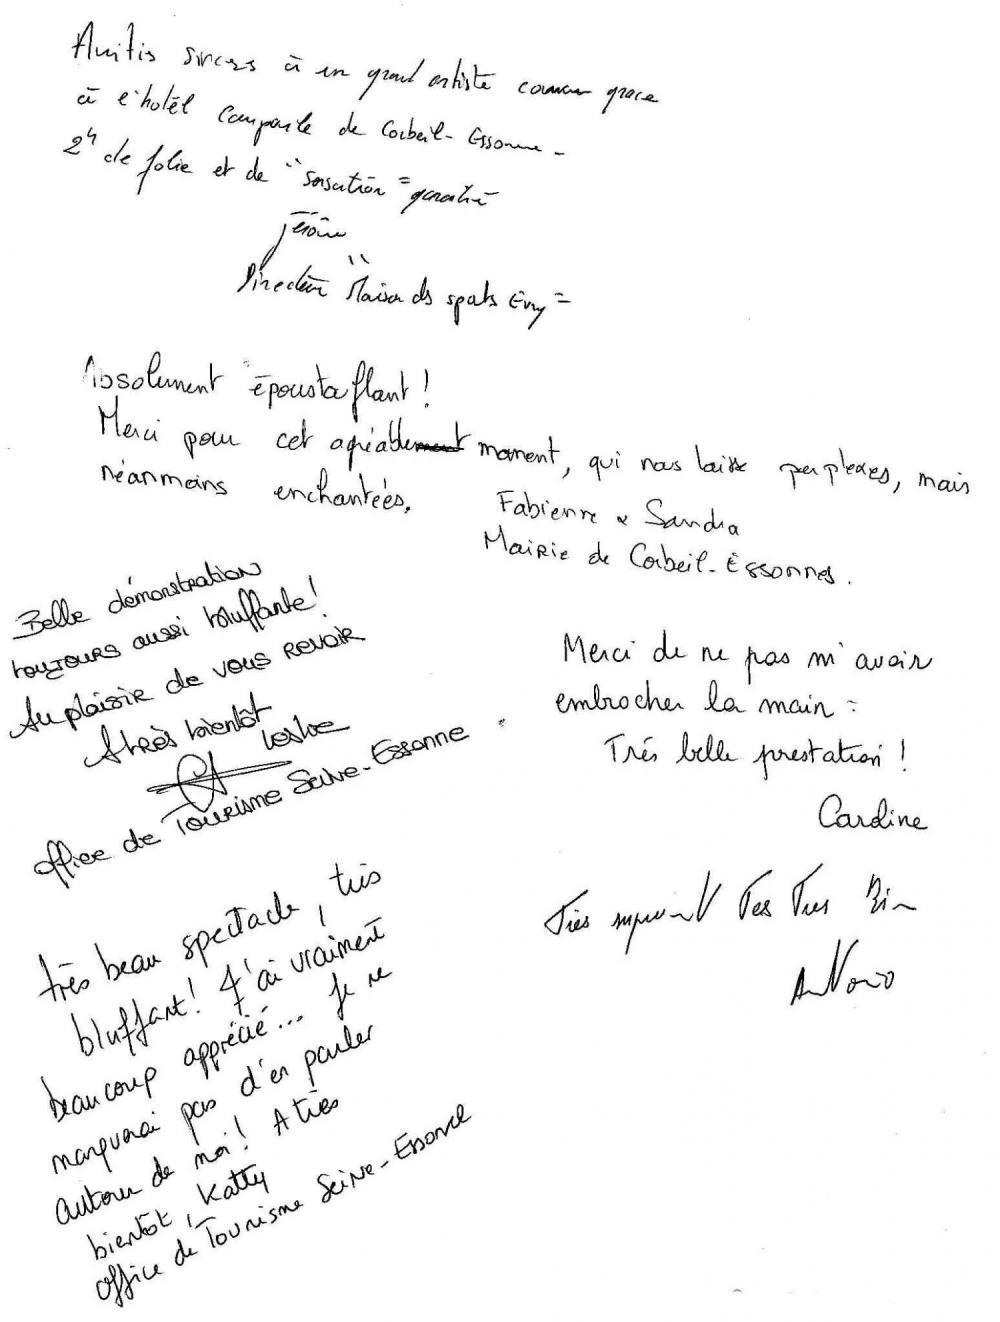 Amitiés sincères à un grand artiste connu grace
à l'hotêl Campanile de Corbeil-Essonne -
2h de folie et de "sensation" garantie
Jérôme
Directeur "Maison des sports Evry"
Absolument époustaflant !
Merci pour cet agréable moment, qui nous laisse perplexes, mais
néanmoins enchantées.
Fabienne & Sandra
Mairie de Corbeil-Essonnes.
Belle démonstration
toujours aussi bluffante !
Au plaisir de vous revoir
A très bientôt
Office de Tourisme Seine-Essonne
Merci de ne pas m'avoir
embrocher la main :
Très belle prestation !
Caroline
Très Tres Bien
Antonio
très beau spectacle, très
bluffant ! J'ai vraiment
beaucoup apprécié... Je ne
manquerai pas d'en parler
autour de moi ! A très
bientôt, Katty
Office de Tourisme Seine-Essonne